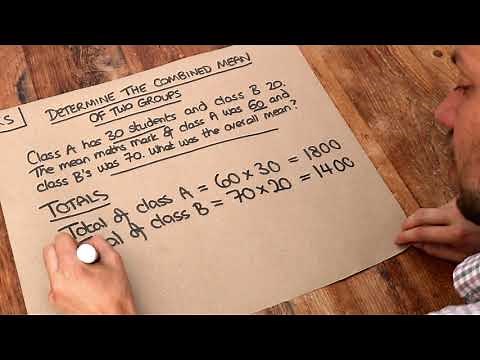 DETERMINE THE COMBINED MEAN
OF TWO GROUPS
Class A has 30 students and class B 20.
The mean maths mark of class A was 60 and
class B's was 70. What was the overall mean?
TOTALS
Total of class A = 60 × 30 = 1800
of class B = 70 × 20 = 1400